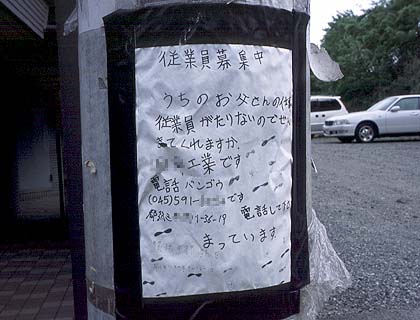 従業員募集中
うちのお父さんの
従業員がたりないので
きてくれますか
工業です
電話バンゴウ
(045)591-です
1-36-19 電話して
まっています